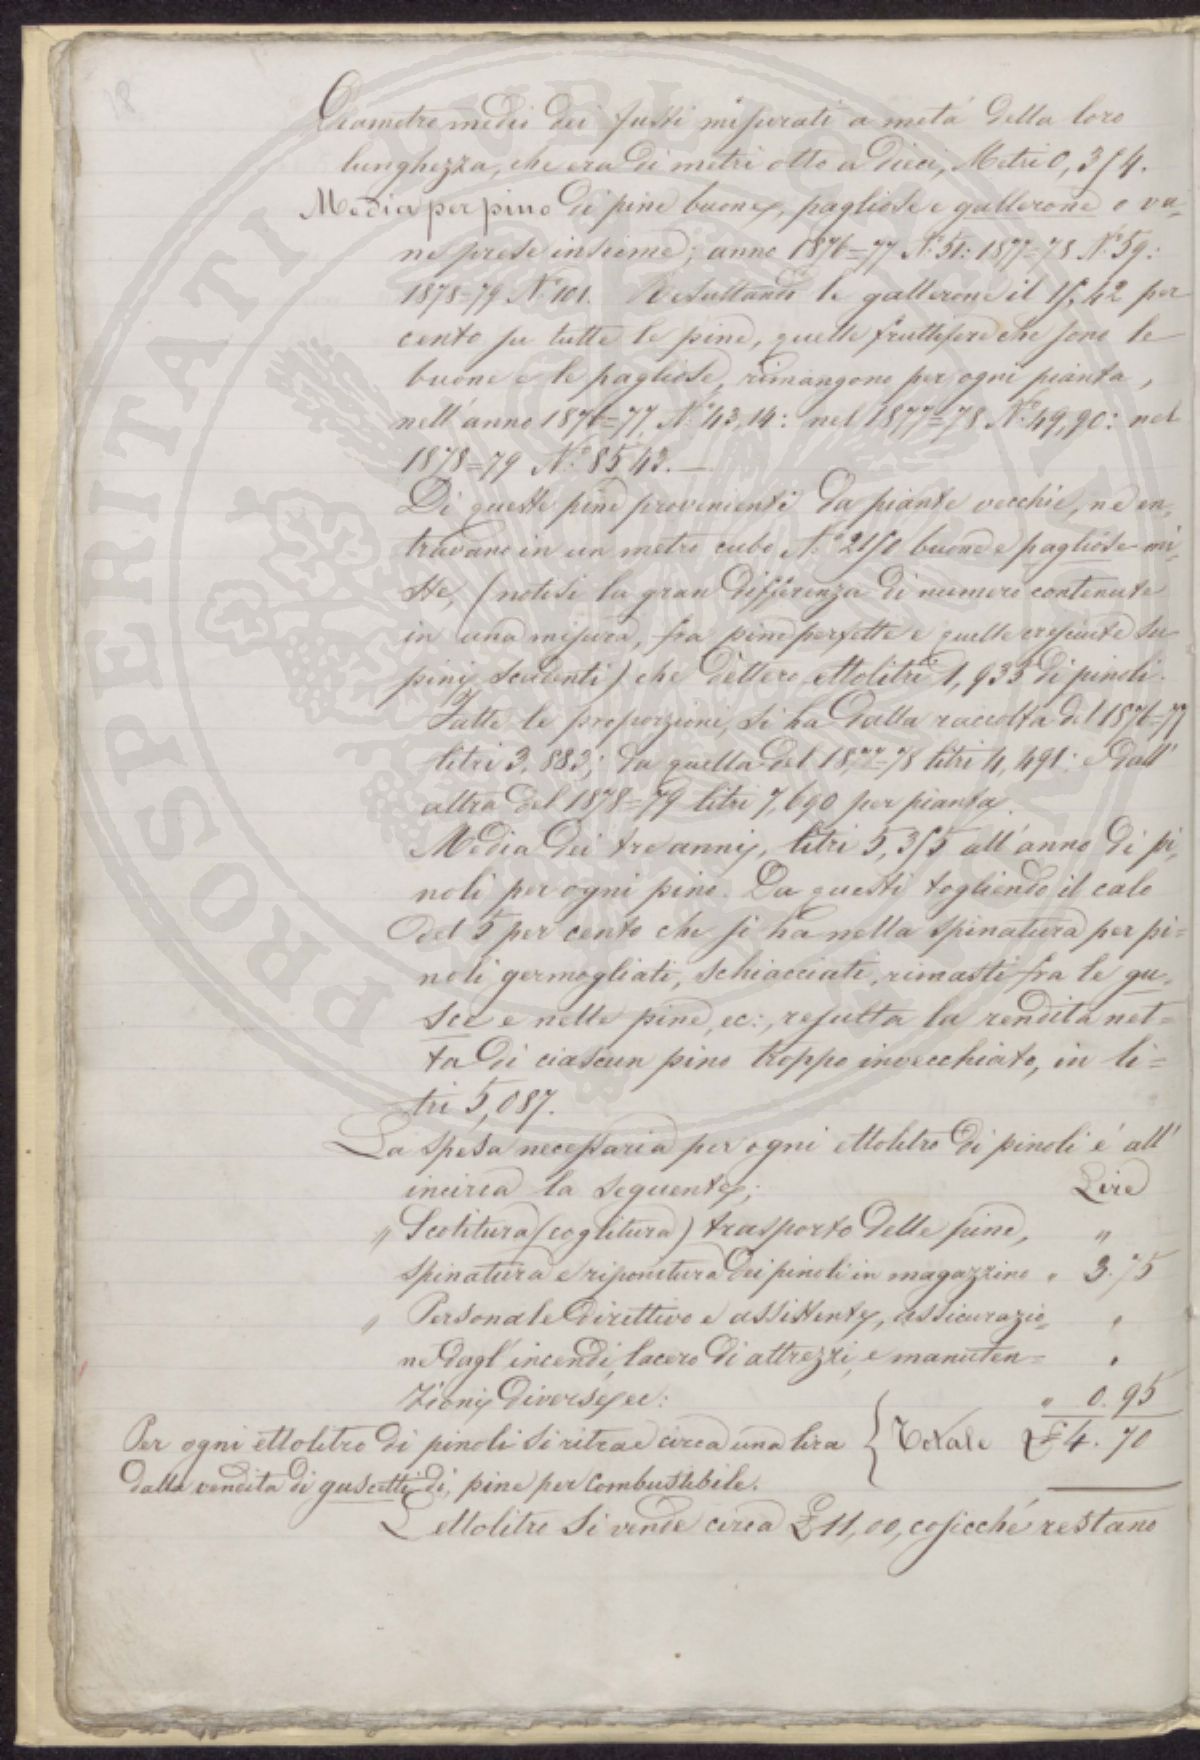 18
Diametro medio dei fusti misurati a metá della loro
lunghezza, che era di metri otto a dieci, Metri 0,354.
Media per pino di pine buone, pagliose e gallerone o va-
ne prese insieme; anno 1876=77 N.° 51: 1877=78 N.° 59:
1878=79 N.° 101. Resultando le gallerone il 15,42 per
cento su tutte le pine, quelle fruttifere che sono le
buone e le pagliose, rimangono per ogni pianta,
nell'anno 1876=77 N.° 43,14: nel 1877=78 N.° 49,90: nel
1878=79 N.° 85,42. —
Di queste pine provenienti da piante vecchie, ne en-
travano in un metro cubo N.° 2150 buone e pagliose mi-
ste, (notisi la gran differenza di numero contenute
in una misura, fra pine perfette e quelle cresciute su
pini scadenti) che dettero ettolitri 1,933 di pinoli.
Fatte le proporzioni, si ha dalla raccolta del 1876=77
litri 3,883; da quella del 1877=78 litri 4,491: e dall'
altra del 1878=79 litri 7,690 per pianta.
Media dei tre anni, litri 5,355 all'anno di pi-
noli per ogni pino. Da questi togliendo il calo
del 5 per cento che si ha nella spinatura per pi=
noli germogliati, schiacciati, rimasti fra le gu-
sce e nelle pine, ec:, resulta la rendita net=
ta di ciascun pino troppo invecchiato, in li=
tri 5,087.
La spesa necessaria per ogni ettolitro di pinoli é all'
incirca la seguente; Lire
" Scolitura (coglitura) trasporto delle pine, "
spinatura e riponitura dei pinoli in magazzino " 3.75
" Personale direttivo e assistente, assicurazio- "
ne dagl'incendi, lacero di attrezzi, e manuten= "
zioni diverse, ec: " 0.95
Per ogni ettolitro di pinoli si ritrae circa una lira { Totale £ 4.70
dalla vendita di guscetti di, pine per combustibile.
L'ettolitro si vende circa £ 11,00, cosicché restano